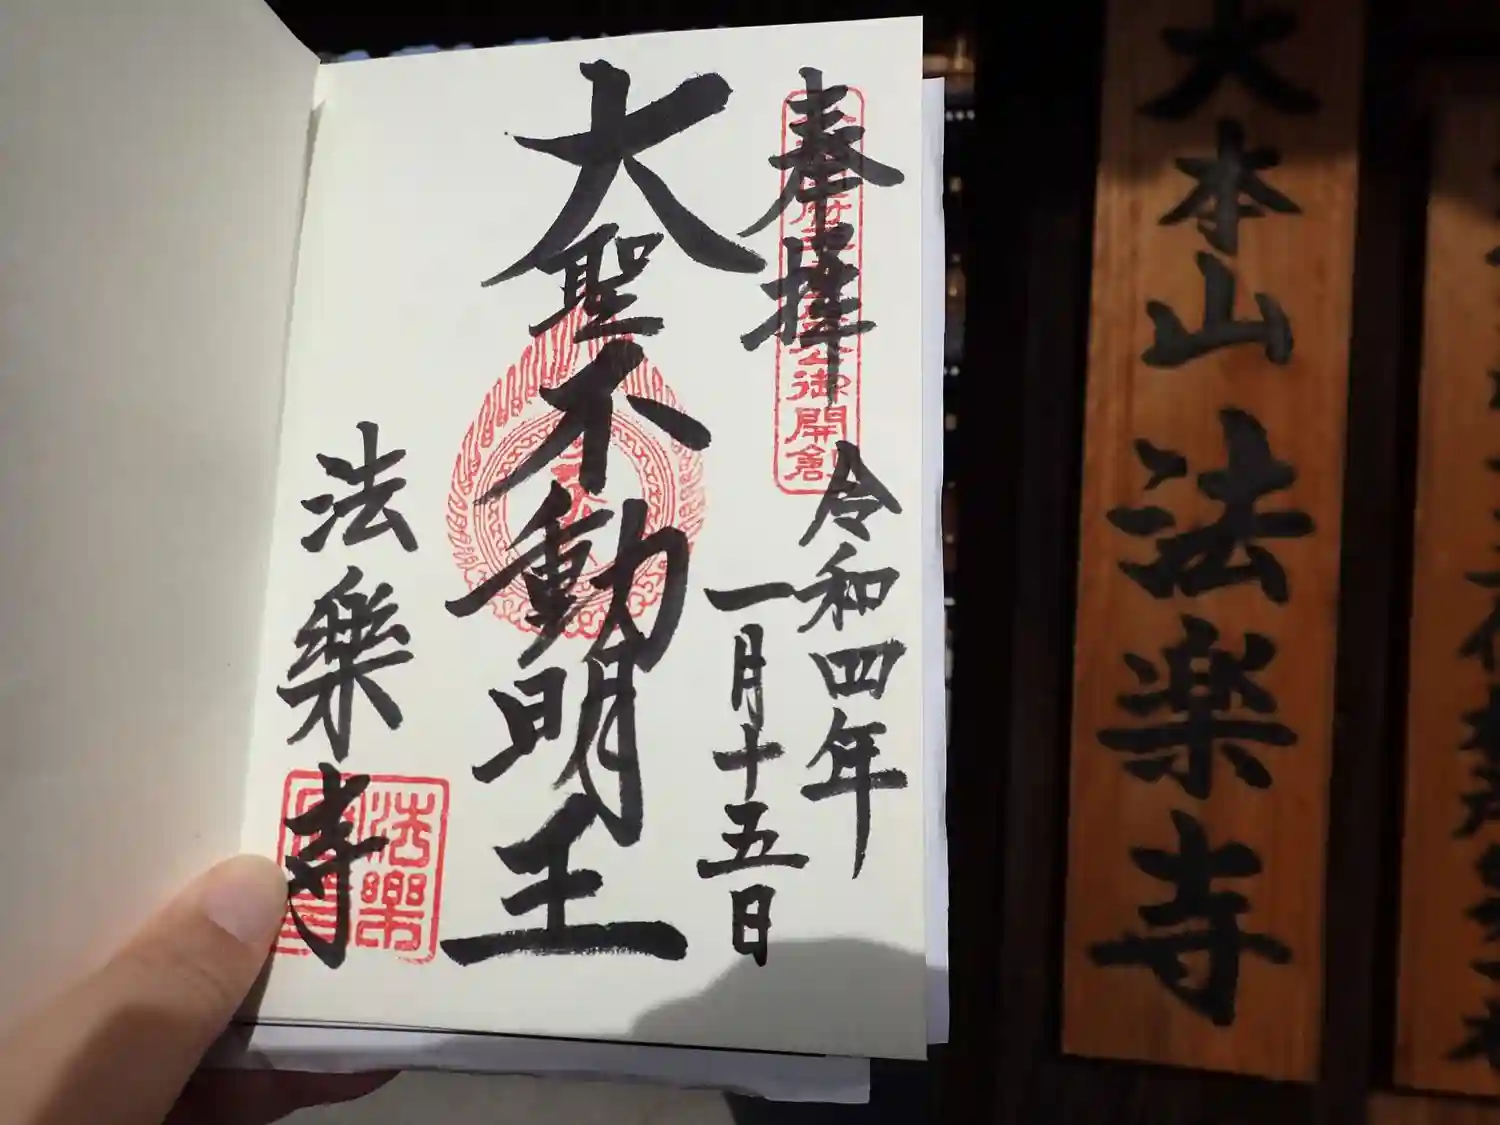 奉拝
令和四年
一月十五日
大聖不動明王
法樂寺
御開創
法樂
大本山 法楽寺